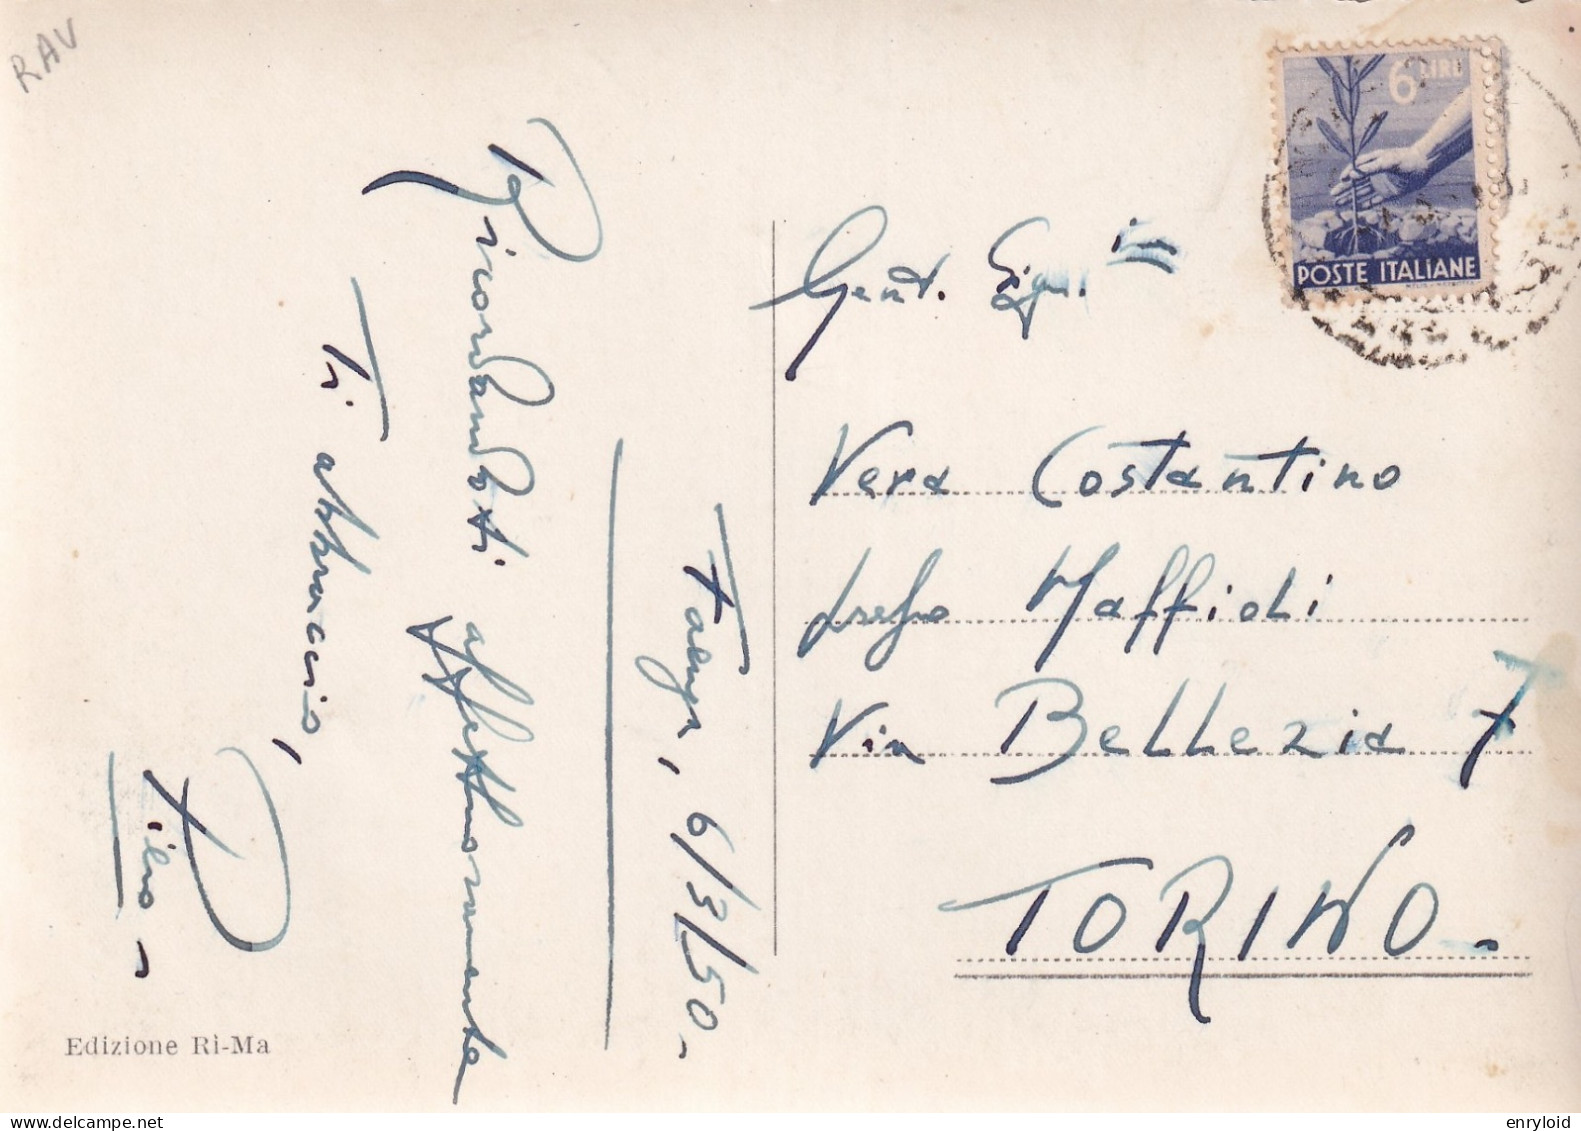 RAV
6 LIRE
POSTE ITALIANE
Gent. Sign.in
Vera Costantino
presso Maffioli
Via Bellezia 7
TORINO -
Faenza, 6/3/50 -
Ricordandoti affettuosamente
Ti abbraccio,
Edizione Ri-Ma
enryloid
delcampe.net